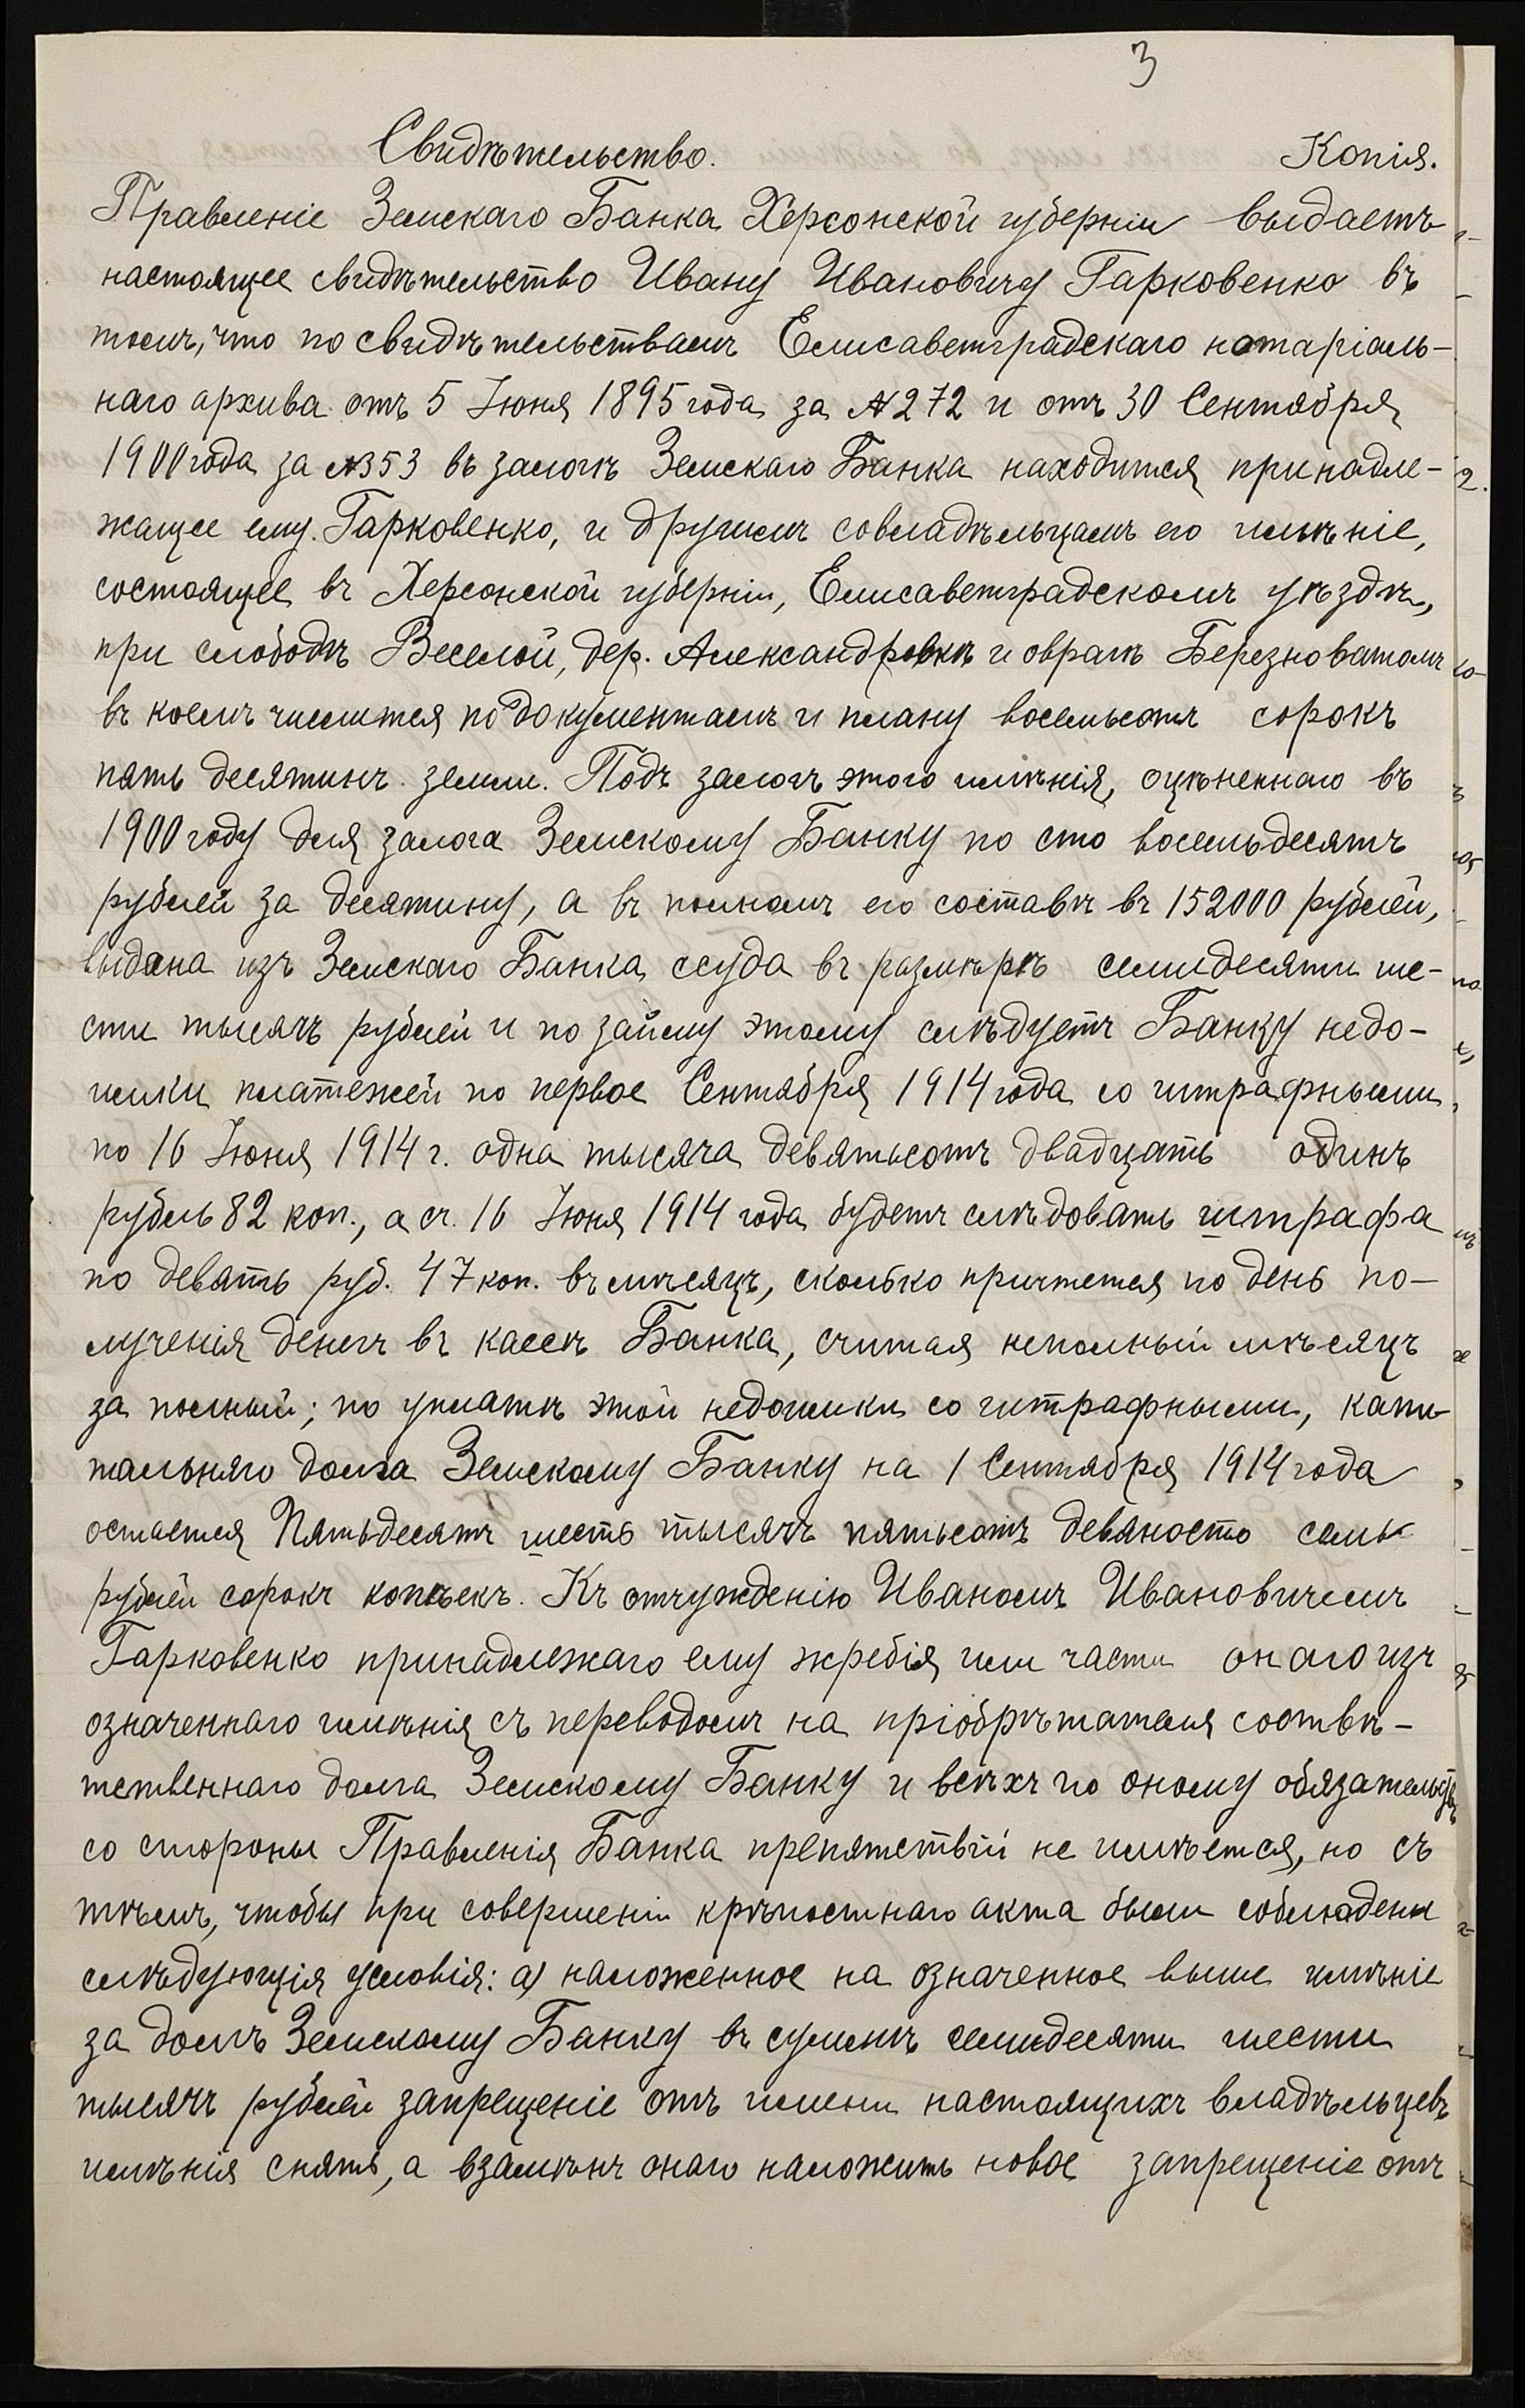 3
Свидѣтельство. Копія.
Правленіе Земскаго Банка Херсонской губерніи выдаетъ
настоящее свидѣтельство Ивану Ивановичу Гарковенко въ
томъ, что по свидѣтельствамъ Елисаветградскаго нотаріаль-
наго архива отъ 5 Іюня 1895 года за № 272 и отъ 30 Сентября
1900 года за № 353 въ залогѣ Земскаго Банка находится принадле-
жащее ему Гарковенко, и другимъ совладѣльцамъ его имѣніе,
состоящее въ Херсонской губерніи, Елисаветградскомъ уѣздѣ,
при слободѣ Веселой, дер. Александровкѣ и овраге Березноватомъ
въ коемъ числится по документамъ и плану восемьсотъ сорокъ
пять десятинъ земли. Подъ залогъ этого имѣнія, оцѣненнаго въ
1900 году для залога Земскому Банку по сто восемьдесятъ
рублей за десятину, а въ полномъ его составѣ въ 152000 рублей,
выдана изъ Земскаго Банка ссуда въ размѣрѣ семидесяти ше-
сти тысячъ рублей и по займу этому слѣдуетъ Банку недо-
имки платежей по первое Сентября 1914 года со штрафными
по 16 Іюня 1914 г. одна тысяча девятьсотъ двадцать одинъ
рубль 82 коп., а съ 16 Іюня 1914 года будетъ слѣдовать штрафа
по девять руб. 47 коп. въ мѣсяцъ, сколько причтется по день по-
лученія денегъ въ кассѣ Банка, считая неполный мѣсяцъ
за полный; по уплатѣ этой недоимки со штрафными, капи-
тальнаго долга Земскому Банку на 1 Сентября 1914 года
остается Пятьдесятъ шесть тысячъ пятьсотъ девяносто семь
рублей сорокъ копѣекъ. Къ отчужденію Иваномъ Ивановичемъ
Гарковенко принадлежаго ему жребія или части онаго изъ
означеннаго имѣнія съ переводомъ на пріобрѣтателя соотвѣ-
тственнаго долга Земскому Банку и всѣхъ по оному обязательствъ
со стороны Правленія Банка препятствій не имѣется, но съ
тѣмъ, чтобы при совершеніи крѣпостнаго акта были соблюдены
слѣдующія условія: а) наложенное на означенное выше имѣніе
за долгъ Земскому Банку въ суммѣ семидесяти шести
тысячъ рублей запрещеніе отъ имени настоящихъ владѣльцевъ
имѣнія снять, а взамѣнъ онаго наложить новое запрещеніе отъ